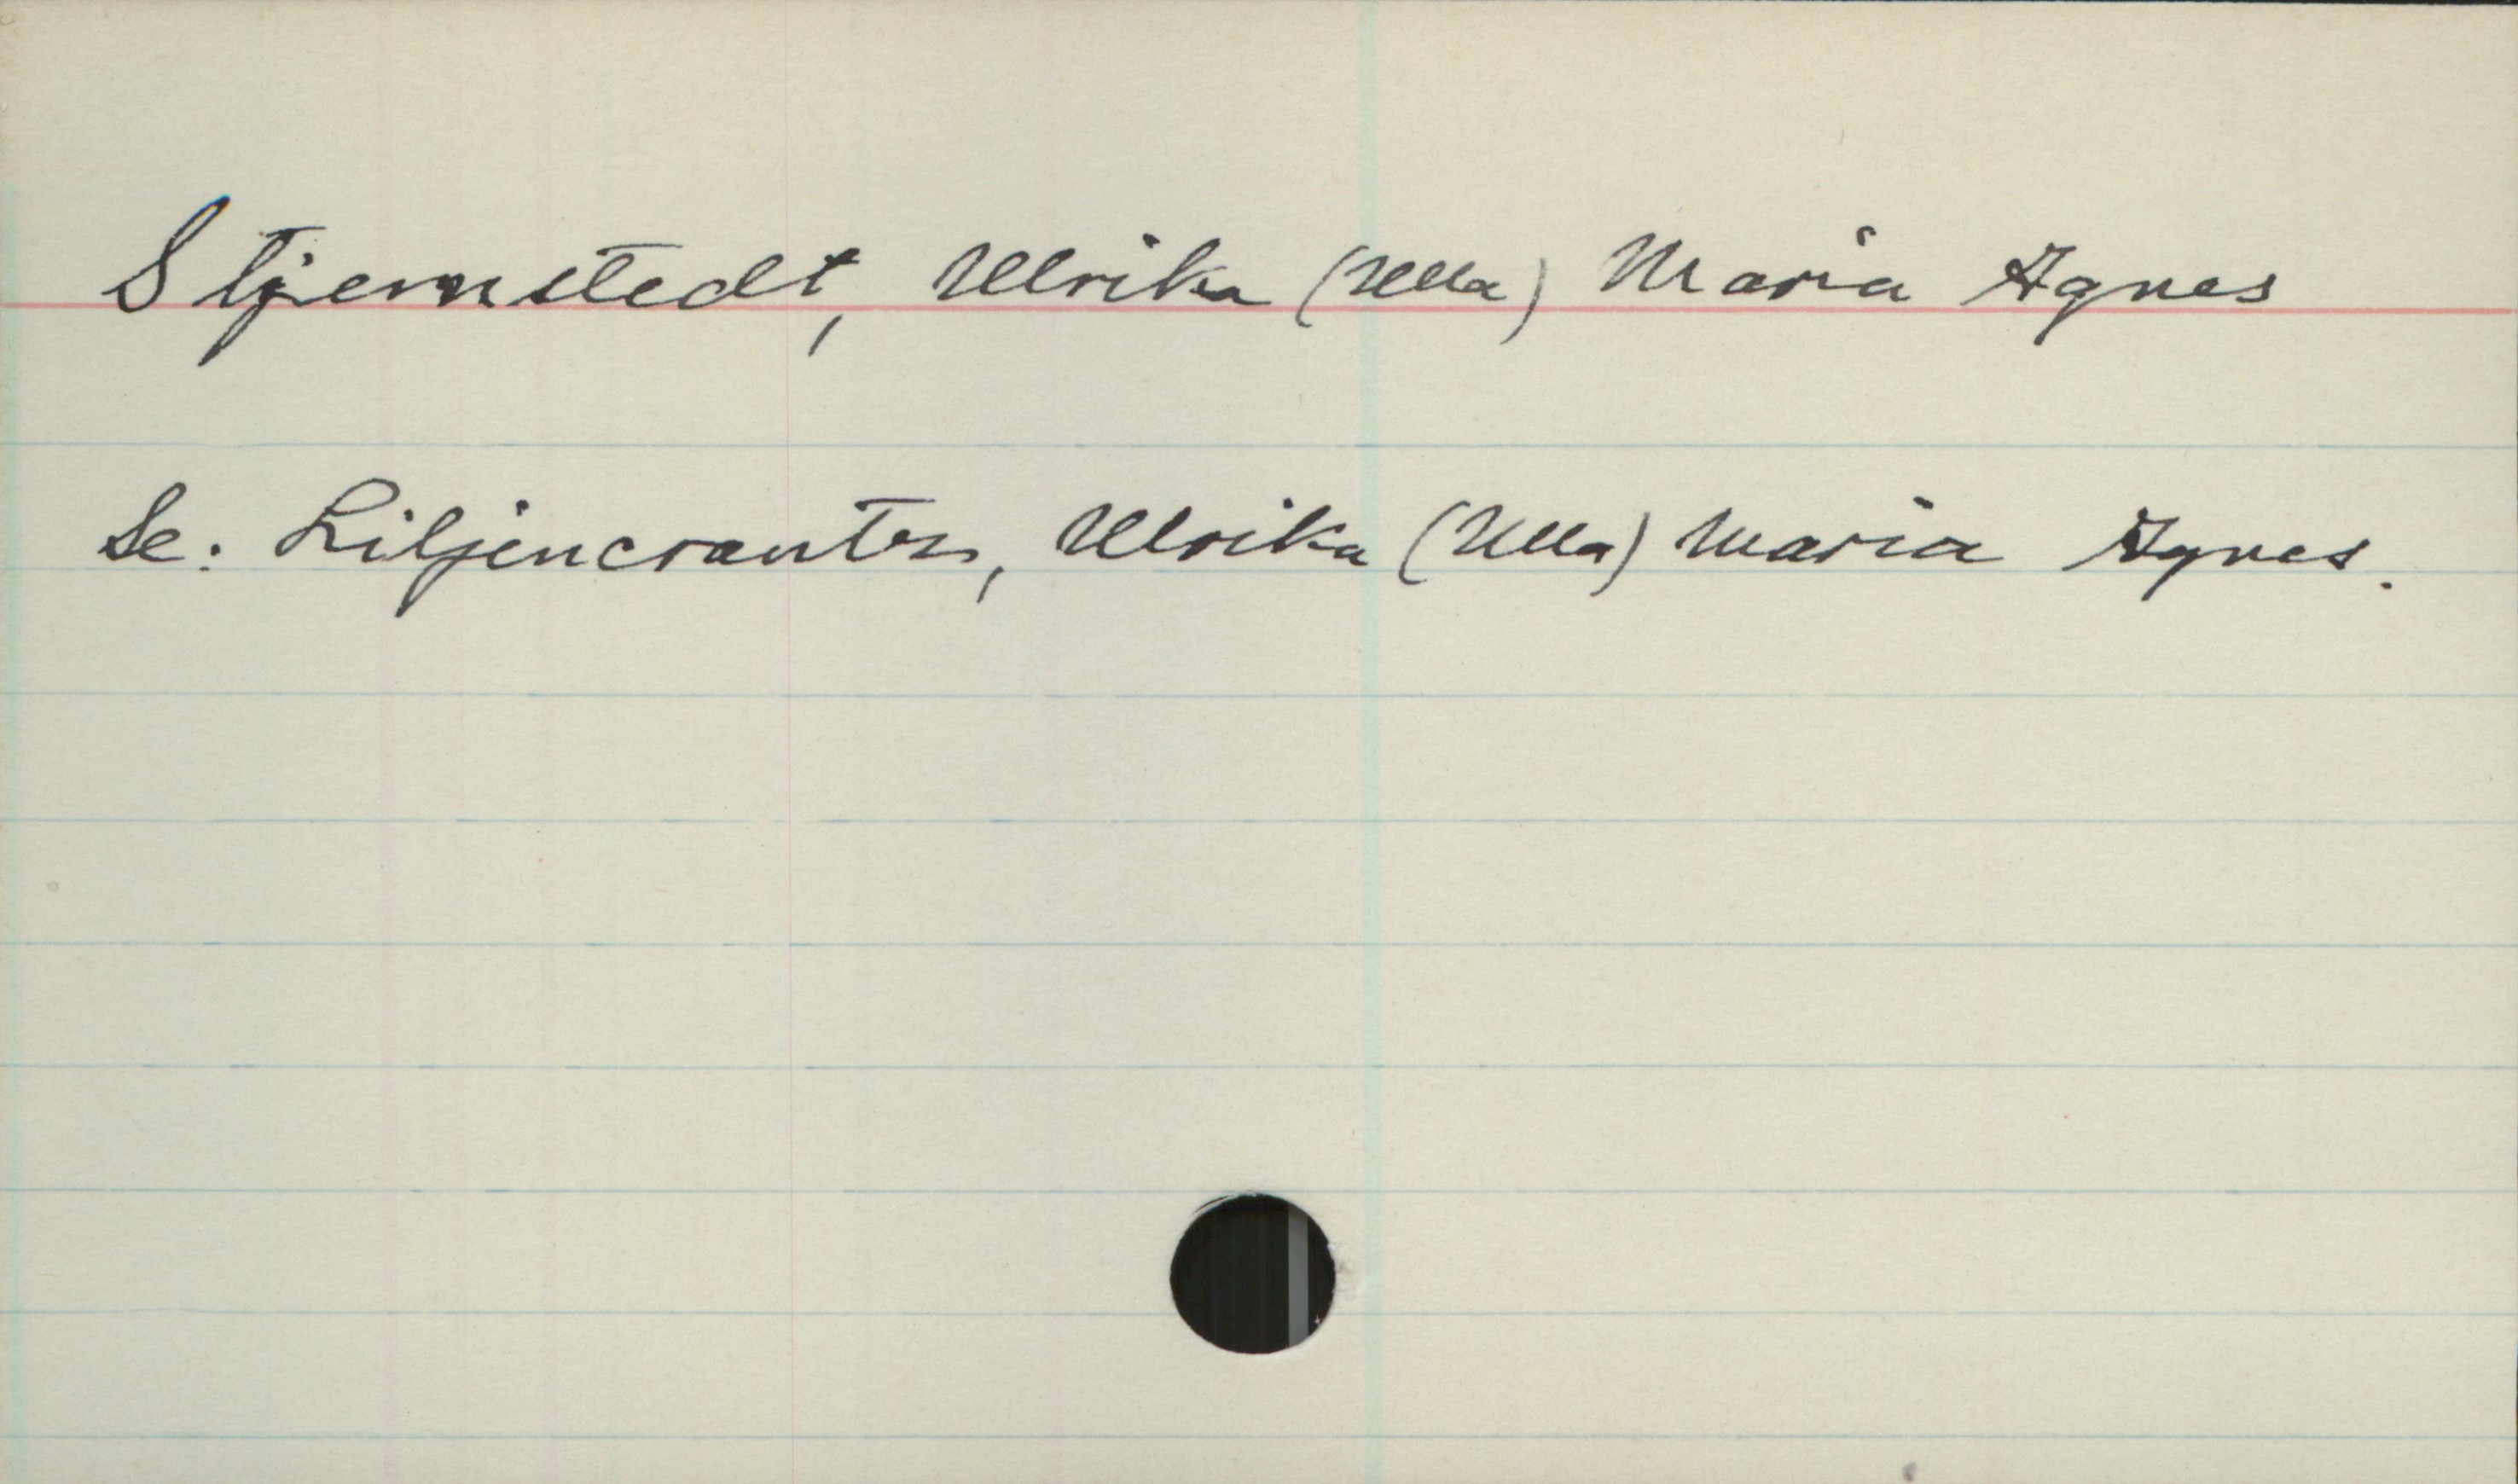 Stjernstedt, Ulrika (Ulla) Maria Agnes
Se: Liljencrantz, Ulrika (Ulla) Maria Agnes.